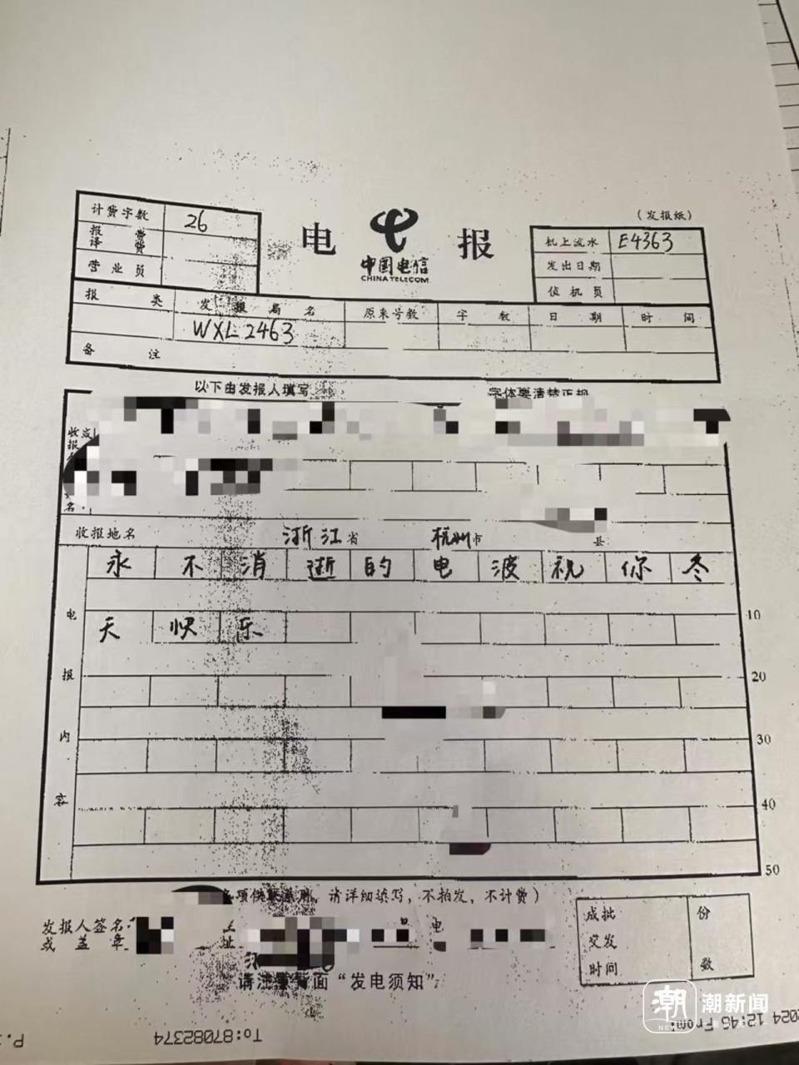 计费字数 26
报费
译费
营业员
电 报
中国电信
CHINA TELECOM
(发报纸)
机上流水 E4363
发出日期
值机员
报类 发报局名 原来号数 字数 日期 时间
WXL 2463
备注
以下由发报人填写 字体要清楚正规
收报地名 浙江省 杭州市 县
电报内容
永不消逝的电波祝你冬
10
天快乐
20
30
40
50
请详细填写,不拍发,不计费)
发报人签名
或盖章
电
址
成批
交发
时间
份
数
请注意背面“发电须知”
潮 潮新闻
2024 12:46 From:
To:87082374
P.